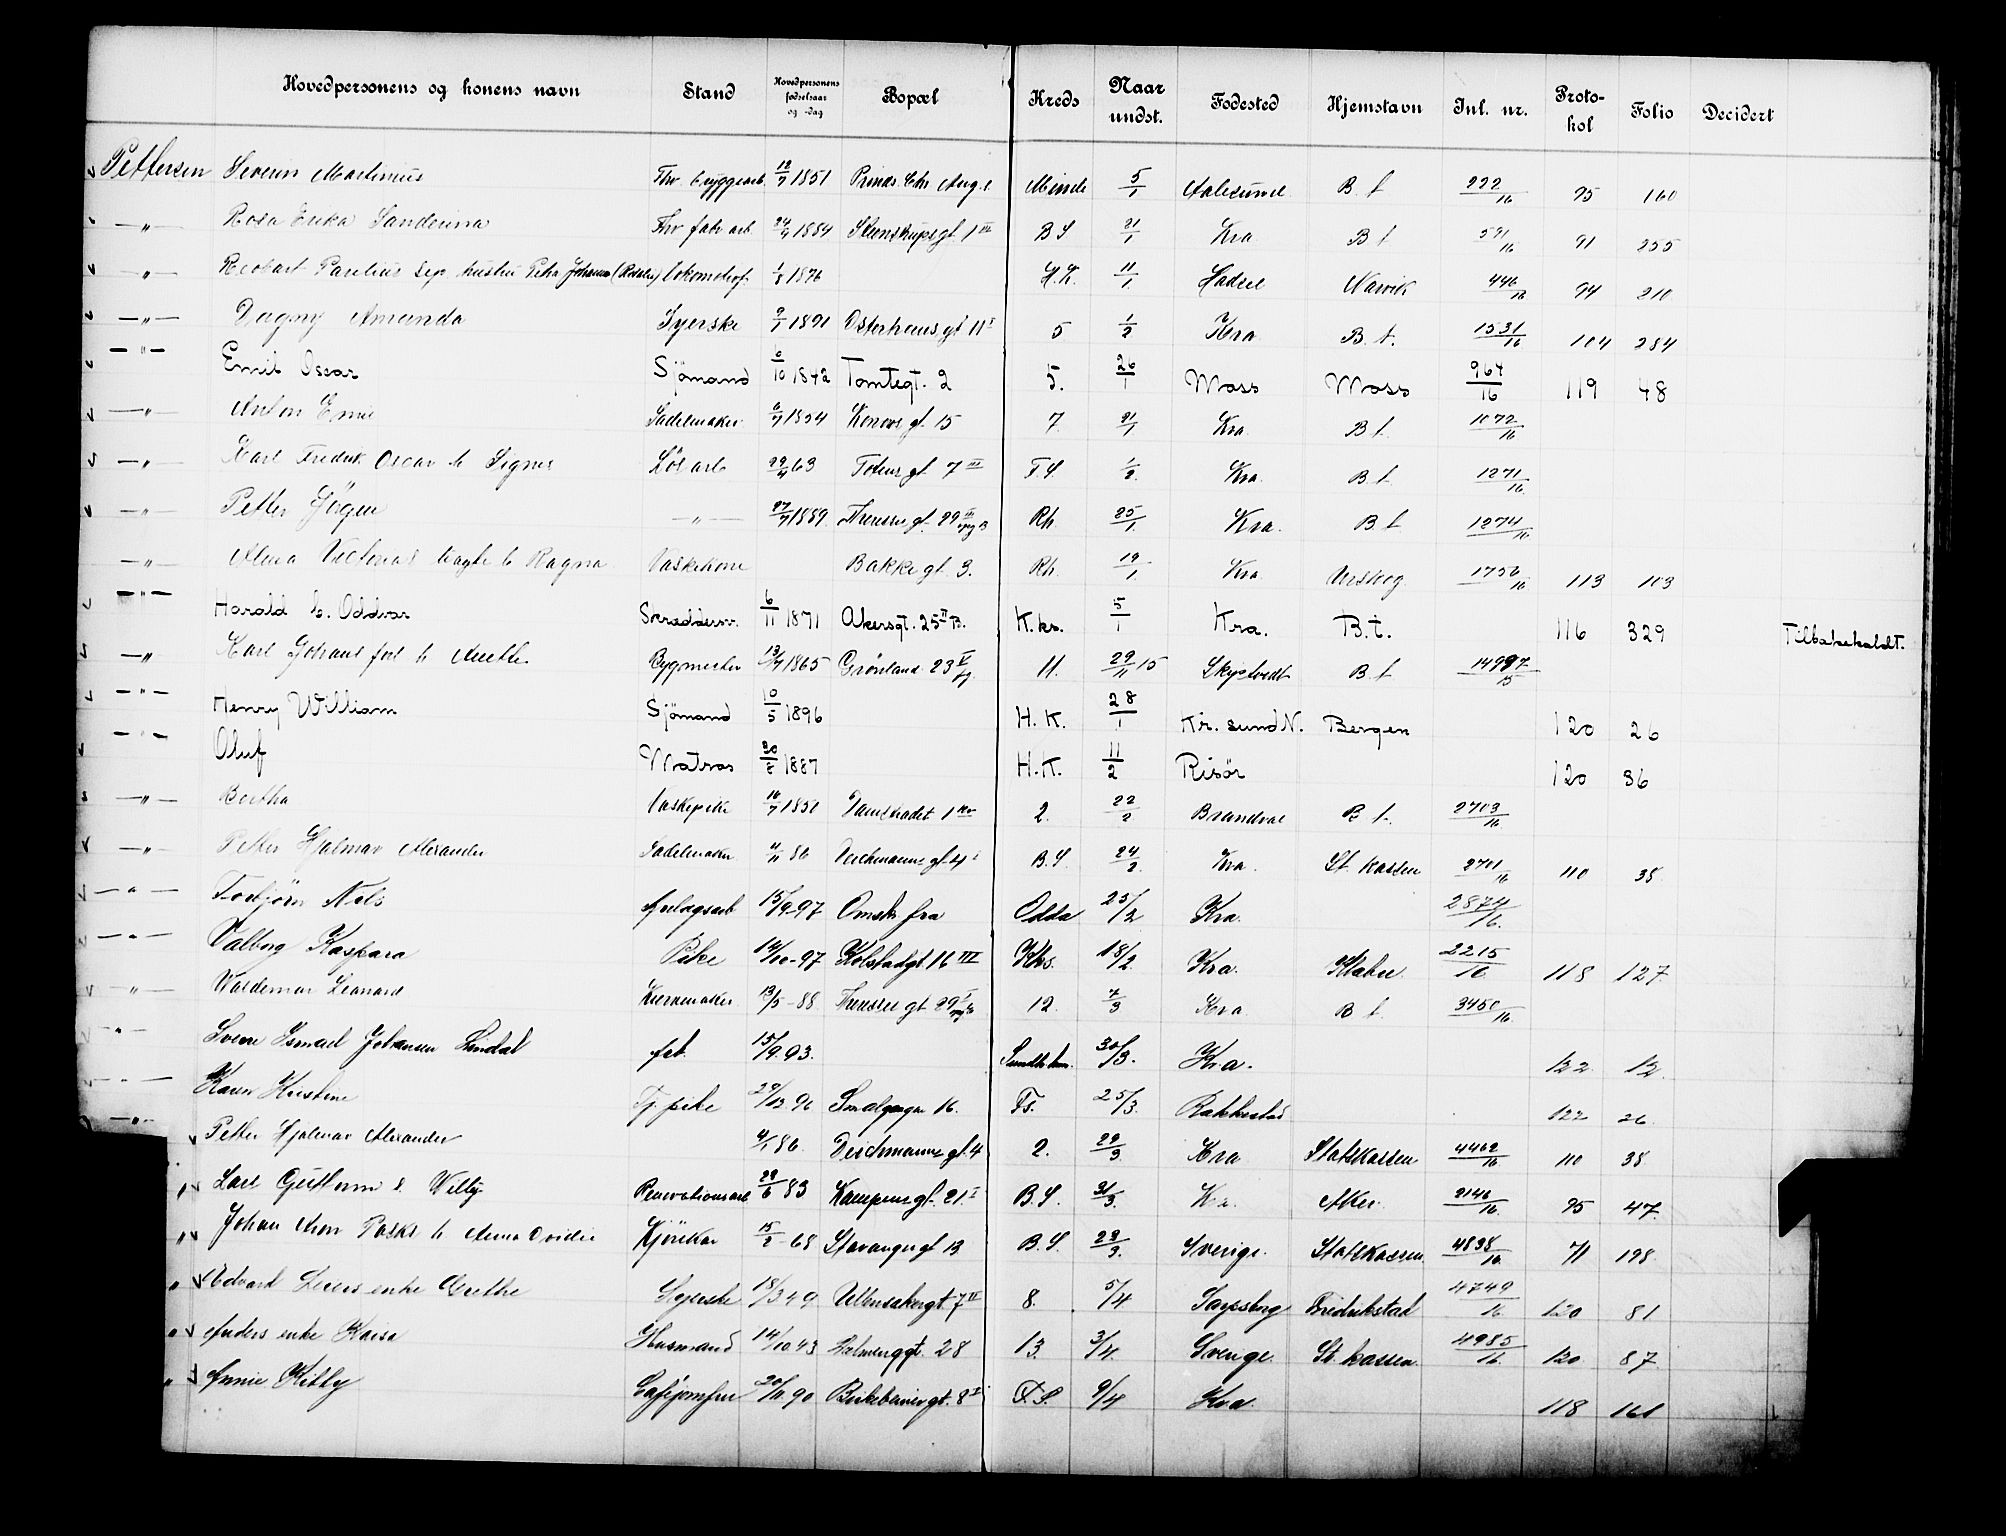 Hovedpersonens og konens navn | Stand | Hovedpersonens fødselsaar og -dag | Bopæl | Kreds | Naar undst. | Fødested | Hjemstavn | Inl. nr. | Protokol | Folio | Decidert
Pettersen Severin Martinius | Thv bryggearb. | 12/7 1851 | Prinds Chr Aug. | Minde | 5/1 | Aalesund | B.t | 222/16 | 95 | 160
—"— Rosa Erika Sanderina | Thv fabr arb. | 24/7 1884 | Steenstrupsgt. 1 III | B S | 21/1 | Kra | B t | 591/16 | 91 | 255
—"— Parelius Sep hustru Petra Johanna | 1/8 1876 | H.K. | 11/1 | Hadsel | Narvik | 446/16 | 94 | 210
—"— Dagny Amanda | Syerske | 9/1 1891 | Osterhausgt 11 I | 5 | 1/2 | Kra | B.t. | 1531/16 | 104 | 284
—"— Emil Oscar | Sjömand | 6/10 1842 | Tomtegt. 2 | 5. | 26/1 | Moss | Moss | 964/16 | 119 | 48
—"— Anton Emil | Sadelmaker | 6/7 1854 | Konows gt. 15 | 7. | 21/1 | Kra | B t. | 1072/16
—"— Karl Fredrik Oscar & Signes | Lös arb | 29/4 63 | Totens gt. 7 III | F.S. | 1/2. | Kra. | B t. | 1271/16
—"— Petter Jörgen | —"— | 27/7 1889. | Theresesgt. 29 III | Rh. | 25/1 | Kra. | B t | 1274/16
—"— Alma Victorias | Vaskekone | Bakkegt. 3. | Rh. | 19/1 | Kra | Urskog | 1756/16 | 113 | 103
—"— Harald & Oddvar | Skræddersv. | 6/11 1871 | Akersgt. 25 II B. | K.ks. | 5/1 | Kra. | B.t. | 116 | 329 | Tilbakekaldt.
—"— Karl Johans | Bygmester | 13/7 1865 | Grönland 23 V | 11. | 29/11 15 | B t | 14997/15
—"— Henry William | Sjömand | 10/5 1896 | H.K. | 28/1 | Kr.sund N. | Bergen | 120 | 26
—"— Oluf | Matros | 30/8 1887 | H.K. | 11/2 | Risör | 120 | 36
—"— Bertha | Vaskepike | 16/7 1851 | Damstradet 1 | 2. | 22/2 | Brandval | B t. | 2703/16
—"— Petter Hjalmar Alexander | Sadelmaker | 4/11 86 | Deichmans gt. 4 I | B.S. | 24/2. | Kra. | St. kassen | 2701/16 | 110 | 38
—"— Torbjörn Nils | 15/9-97 | Omstr. fra | Odda | 25/2 | Kra. | 2874/16.
—"— Valborg Kaspara | Pike | 14/10-97 | Kolstadgt. 16 III | Khs. | 18/2. | Kra. | 2215/16 | 118 | 127
—"— Valdemar Leonard | Kurvmaker | 13/5-88 | Theresesgt. 29 | 12. | 7/3 | Kra | B t. | 3450/16.
" Svein Ismael Johansen Lindal | fab. | 15/9.93. | 30/3. | Kra. | 122 | 12.
—"— Karen Kristine | Tj. pike | 29/12.96 | Smalgangen 16. | Fs. | 25/3. | Rakkestad | 122 | 26.
—"— Petter Hjalmar Alexander | 4/1 86. | Deichmans gt. 4 | 2. | 29/3 | Kra | Statskassen | 4462/16 | 110 | 38
" Carl Guthorm & Willy | Renovationsarb | 29/6 83 | Kampens gt. 21 I | B.S. | 31/3. | Kra. | Aker | 2146/16 | 95 | 47.
" Johan Aron & Anna Ovidie | Kjörekar | 15/2-68 | Stavanger gt 13 | B.S. | 29/3. | Sverige. | Statskassen | 4838/16. | 71 | 198.
" Edvard enke Grethe | Syerske | 18/3 49 | Ullensakergt. 7 II | 8. | 5/4 | Sarpsborg | Fredrikstad | 4749/16 | 120 | 81
" Anders enke Kaisa | Husmand | 14/10.43 | 28 | 13. | 3/4. | Sverige. | St. kassen | 4985/16 | 120 | 87.
" Annie Kitty | Cafejomfru | 20/11.90 | Birkebeinergt. 8 I | F.S. | 9/4 | Kra. | 118 | 161